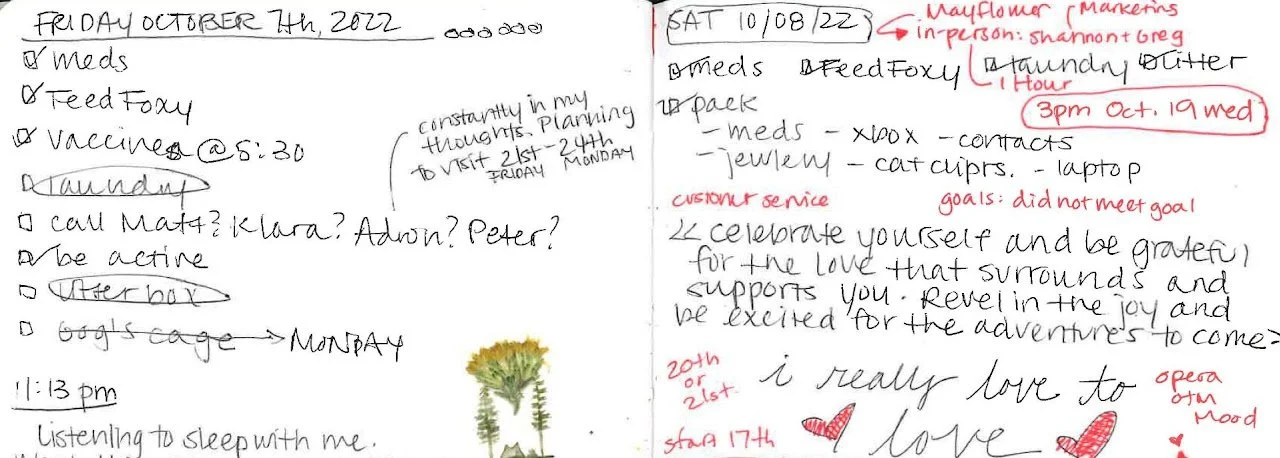 FRIDAY OCTOBER 7th, 2022
meds
Feed Foxy
vaccines @ 5:30
laundry
constantly in my
thoughts. Planning
to visit 21st - 24th
FRIDAY MONDAY
call Matt? Klara? Adron? Peter?
be active
litter box
Gog's cage → MONDAY
11:13 pm
Listening to sleep with me.
SAT 10/08/22
Mayflower Marketing
in-person: Shannon + Greg
meds Feed Foxy laundry litter
1 Hour
3pm Oct. 19 wed
pack
- meds - xbox - contacts
- jewlery - cat cliprs. - laptop
customer service
goals: did not meet goal
<< celebrate yourself and be grateful
for the love that surrounds and
supports you. Revel in the joy and
be excited for the adventures to come >>
20th
or
21st.
i really love to
love
opera
Mood
start 17th